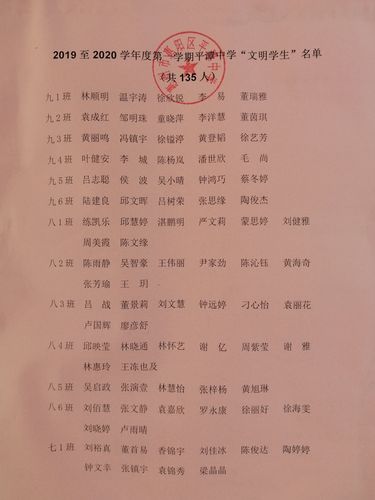 2019 至 2020 学年度第一学期平潭中学“文明学生”名单
（共 135 人）
九1班 林顺明 温宇涛 徐欣锐 李 易 董瑞雅
九2班 袁成红 邹明珠 童晓萍 李洋慧 董茵琪
九3班 黄丽鸣 冯镇宇 徐镒渟 黄登韬 徐艺芳
九4班 叶健安 李 城 陈杨岚 潘世欣 毛 尚
九5班 吕志聪 侯 波 吴小晴 钟鸿巧 蔡冬婷
九6班 陆建良 邱文晖 吕树荣 张思缘 陶俊杰
八1班 练凯乐 邱慧婷 湛鹏明 严文莉 蒙思婷 刘健雅
周美霞 陈文缘
八2班 陈雨静 吴智豪 王伟丽 尹家劲 陈沁钰 黄海奇
张芳瑜 王 玥
八3班 吕 战 董景莉 刘文慧 钟远婷 刁心怡 袁丽花
卢国辉 廖彦舒
八4班 邱映莹 林晓通 林怀艺 谢 亿 周紫莹 谢 雅
林惠玲 王冻也及
八5班 吴启政 张演壹 林慧怡 张梓杨 黄旭琳
八6班 刘佰慧 张文静 袁嘉欣 罗永康 徐丽妤 徐海雯
刘晓婷 卢雨晴
七1班 刘裕真 董首易 香锦宇 刘佳冰 陈俊达 陶婷婷
钟文幸 张镇宇 袁锦秀 梁晶晶